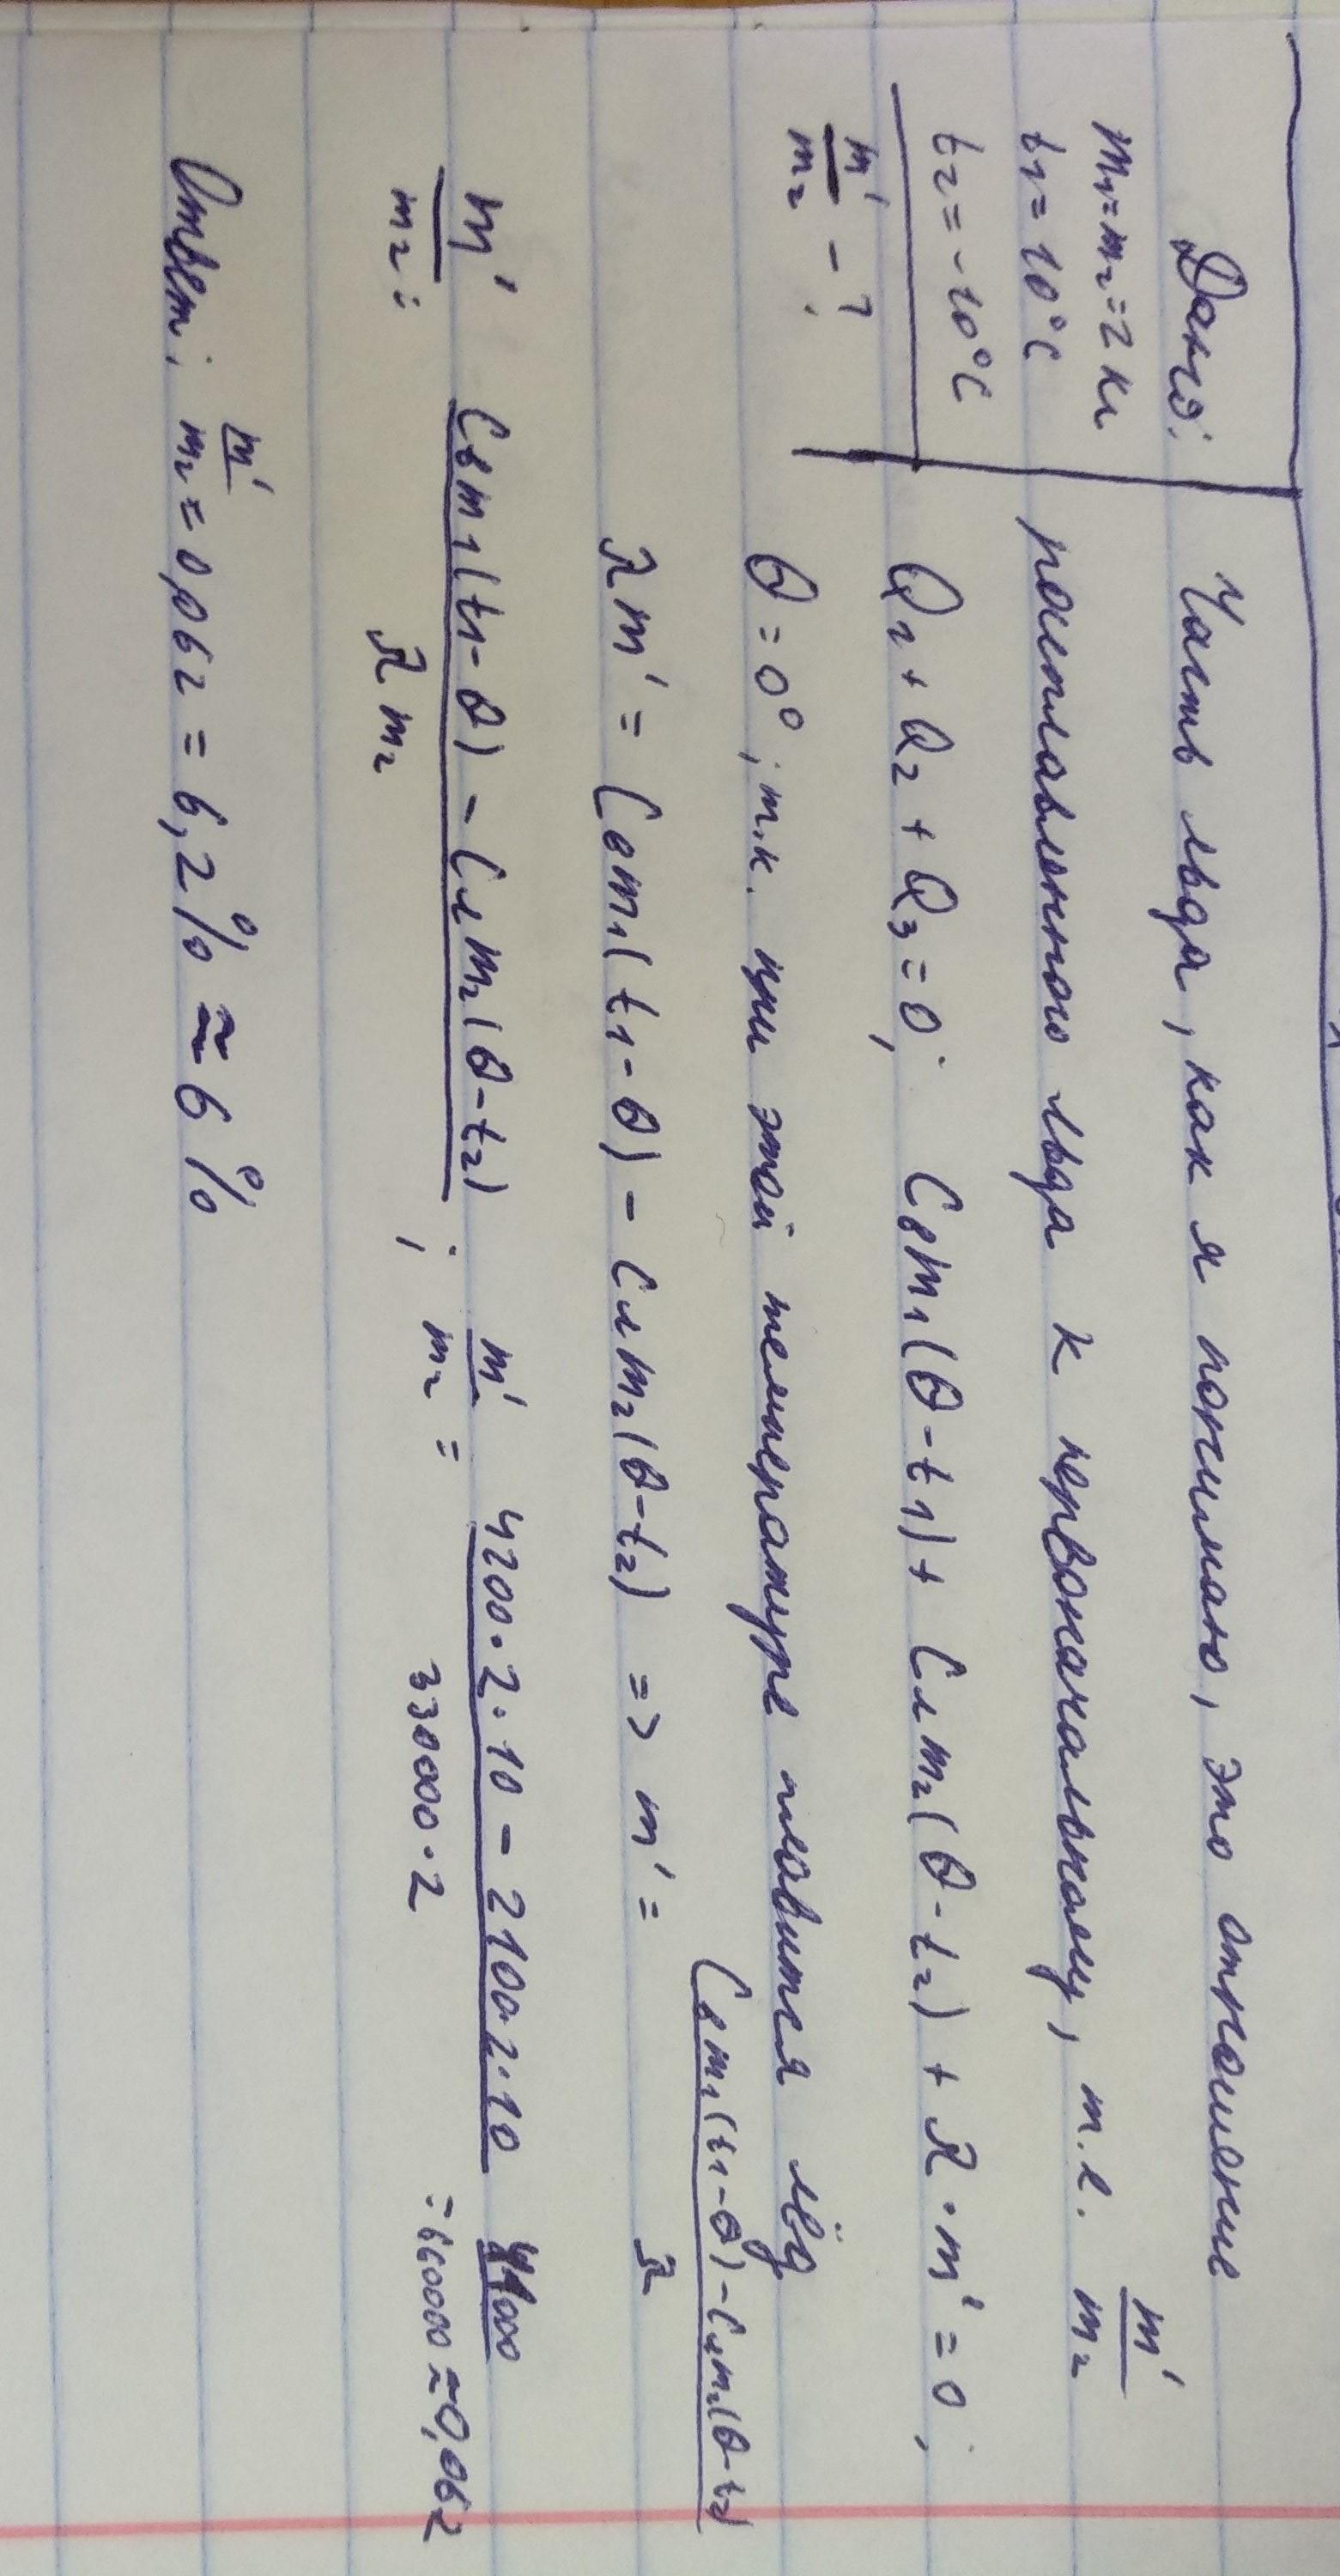 Дано:
m₁=m₂=2 кг
t₁=10°C
t₂=-10°C
m'/m₂ - ?
Часть льда, как я понимаю, это отношение
расплавленного льда к первоначальному, т.е. m'/m₂
Q₁ + Q₂ + Q₃ = 0; Cвm₁(θ-t₁) + Cлm₂(θ-t₂) + λ·m' = 0;
θ = 0°, т.к. при этой температуре плавится лёд
λm' = Cвm₁(t₁-θ) - Cлm₂(θ-t₂) => m' = (Cвm₁(t₁-θ) - Cлm₂(θ-t₂))/λ
m'/m₂ : (Cвm₁(t₁-θ) - Cлm₂(θ-t₂))/(λm₂) ; m'/m₂ = (4200·2·10 - 2100·2·10)/(330000·2) = 41000/660000 ≈ 0,062
Ответ: m'/m₂ = 0,062 = 6,2% ≈ 6%